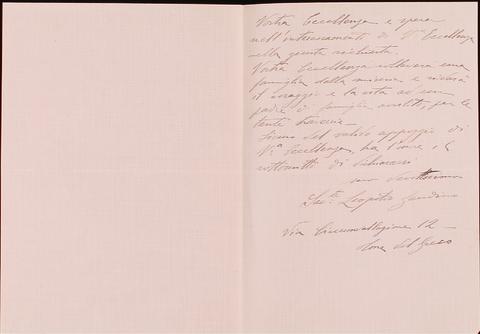 Vostra Eccellenza e spera
nell'interessamento di V. Eccellenza
nella giusta richiesta.
Vostra Eccellenza solleverà una
famiglia dalla miseria e ridarà
il coraggio e la vita ad un
padre di famiglia avvilito, per le
tante
Sicuro del valido appoggio di
V.a Eccellenza, ha l'onore, i
sottoscritti di
suo
Leopoldo
Via Circumvallazione 12 –
Torre del Greco